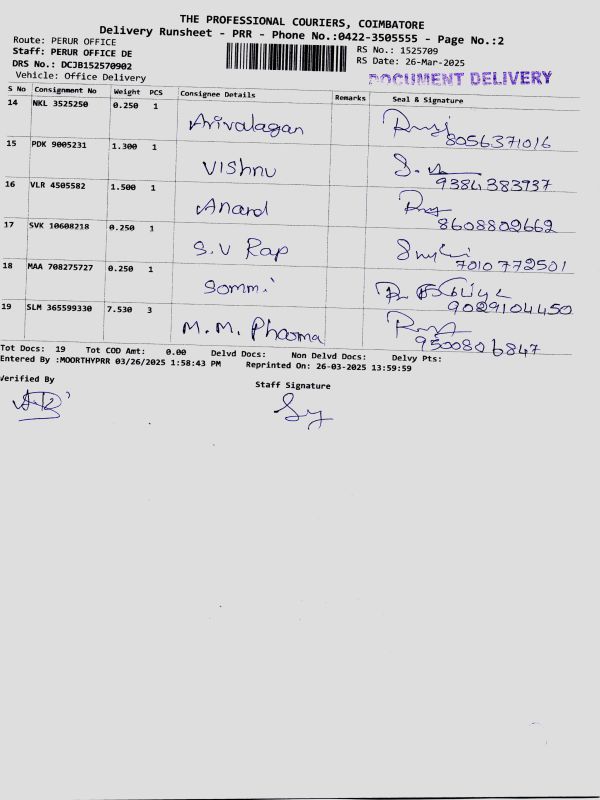 THE PROFESSIONAL COURIERS, COIMBATORE
Delivery Runsheet - PRR - Phone No.:0422-3505555 - Page No.:2
Route: PERUR OFFICE
RS No.: 1525709
Staff: PERUR OFFICE DE
RS Date: 26-Mar-2025
DRS No.: DCJB152570902
Vehicle: Office Delivery
DOCUMENT DELIVERY
S No Consignment No Weight PCS Consignee Details Remarks Seal & Signature
14 NKL 3525250 0.250 1 Arivalagan
8056371016
15 PDK 9005231 1.300 1 Vishnu
9384383937
16 VLR 4505582 1.500 1 Anand
8608802662
17 SVK 10608218 0.250 1 S.V Rap
7010772501
18 MAA 708275727 0.250 1
9029104450
19 SLM 365599330 7.530 3 M.M. Pharma
9500806847
Tot Docs: 19 Tot COD Amt: 0.00 Delvd Docs: Non Delvd Docs: Delvy Pts:
Entered By :MOORTHYPRR 03/26/2025 1:58:43 PM Reprinted On: 26-03-2025 13:59:59
Verified By
Staff Signature